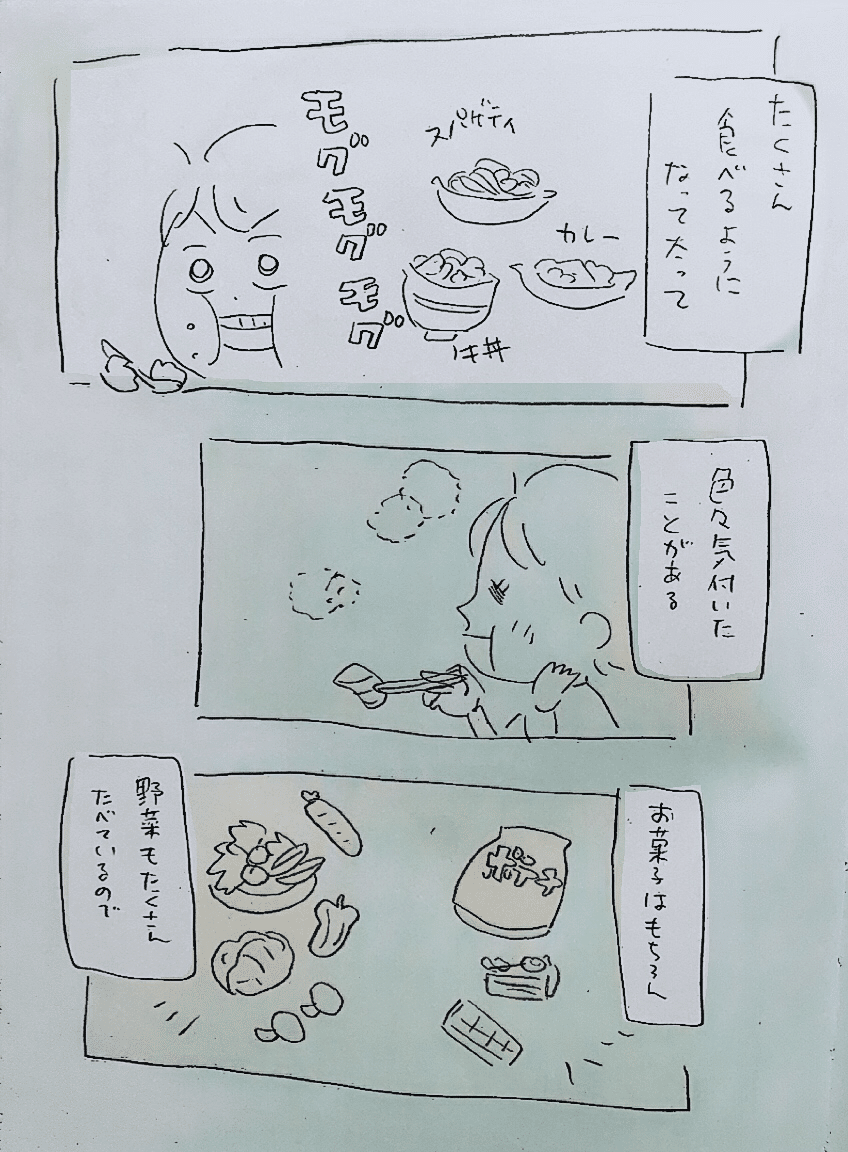 たくさん
食べるように
なって太って
スパゲティ
カレー
モグ
モグ
モグ
色々気付いた
ことがある
お菓子はもちろん
ポテチ
野菜もたくさん
たべているので